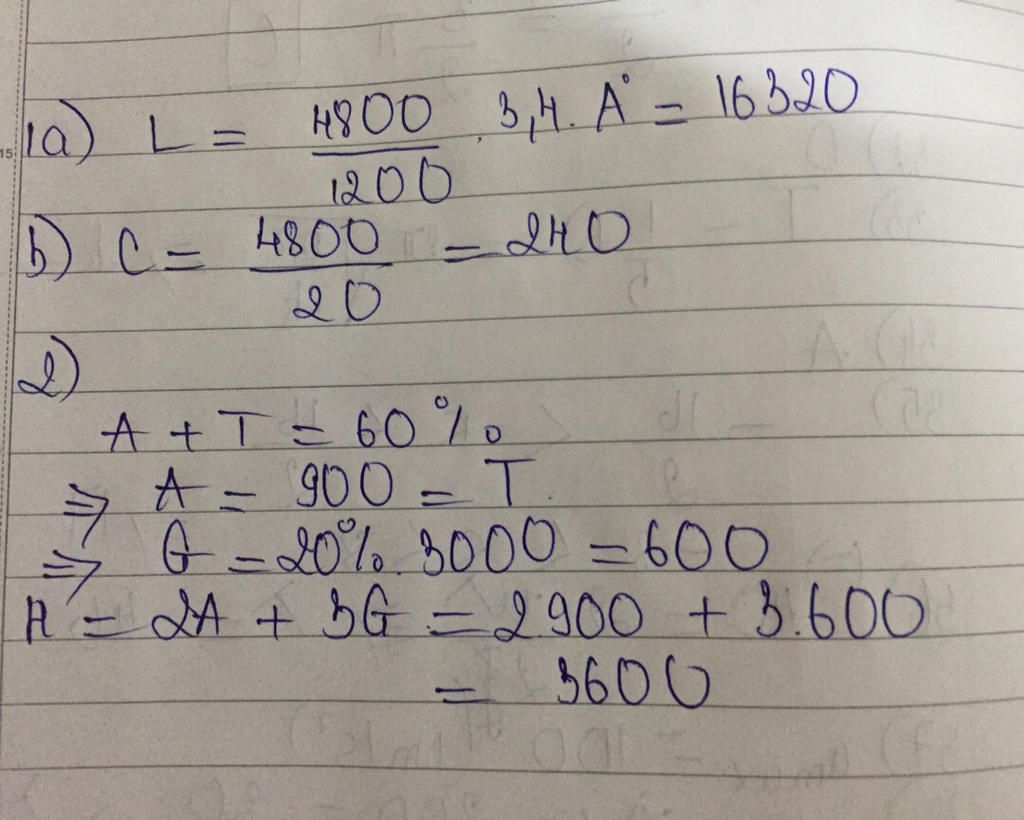 1a) L = 4800/1200 . 3,4. A° = 16320
b) C = 4800/20 = 240
2)
A + T = 60%
=> A = 900 = T.
=> G = 20%. 3000 = 600
H = 2A + 3G = 2.900 + 3.600
= 3600